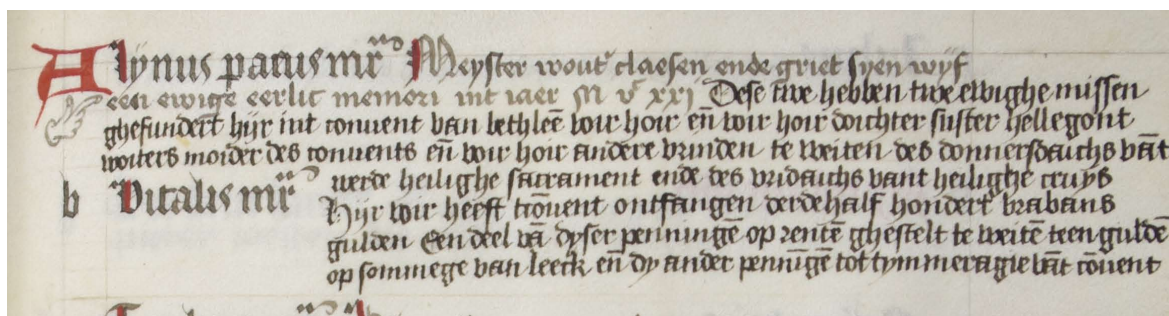 A lynus pacus mr̄ Meyster wout' claesen ende griet syen wijf
een ewige eerlic memori int iaer M vc xxi Dese twe hebben twe ewighe missen
ghefundert hijr int conuent van bethleē voir hoir en̄ voir hoir doichter suster hellegont
woiters moider des conuents en̄ voir hoir andere vrinden te weiten des donnersdaichs vāt
werde heilighe sacrament ende des vridaichs vant heilighe cruys
b Vitalis mr̄ Hijr voir heeft tcōuent ontfangen derdehalf hondert brabans
gulden Een deel vā dyser penningē op rentē ghestelt te weitē teen guldē
op sommege van leeck en̄ dy ander penningē tot tymmeragie vāt cōuent